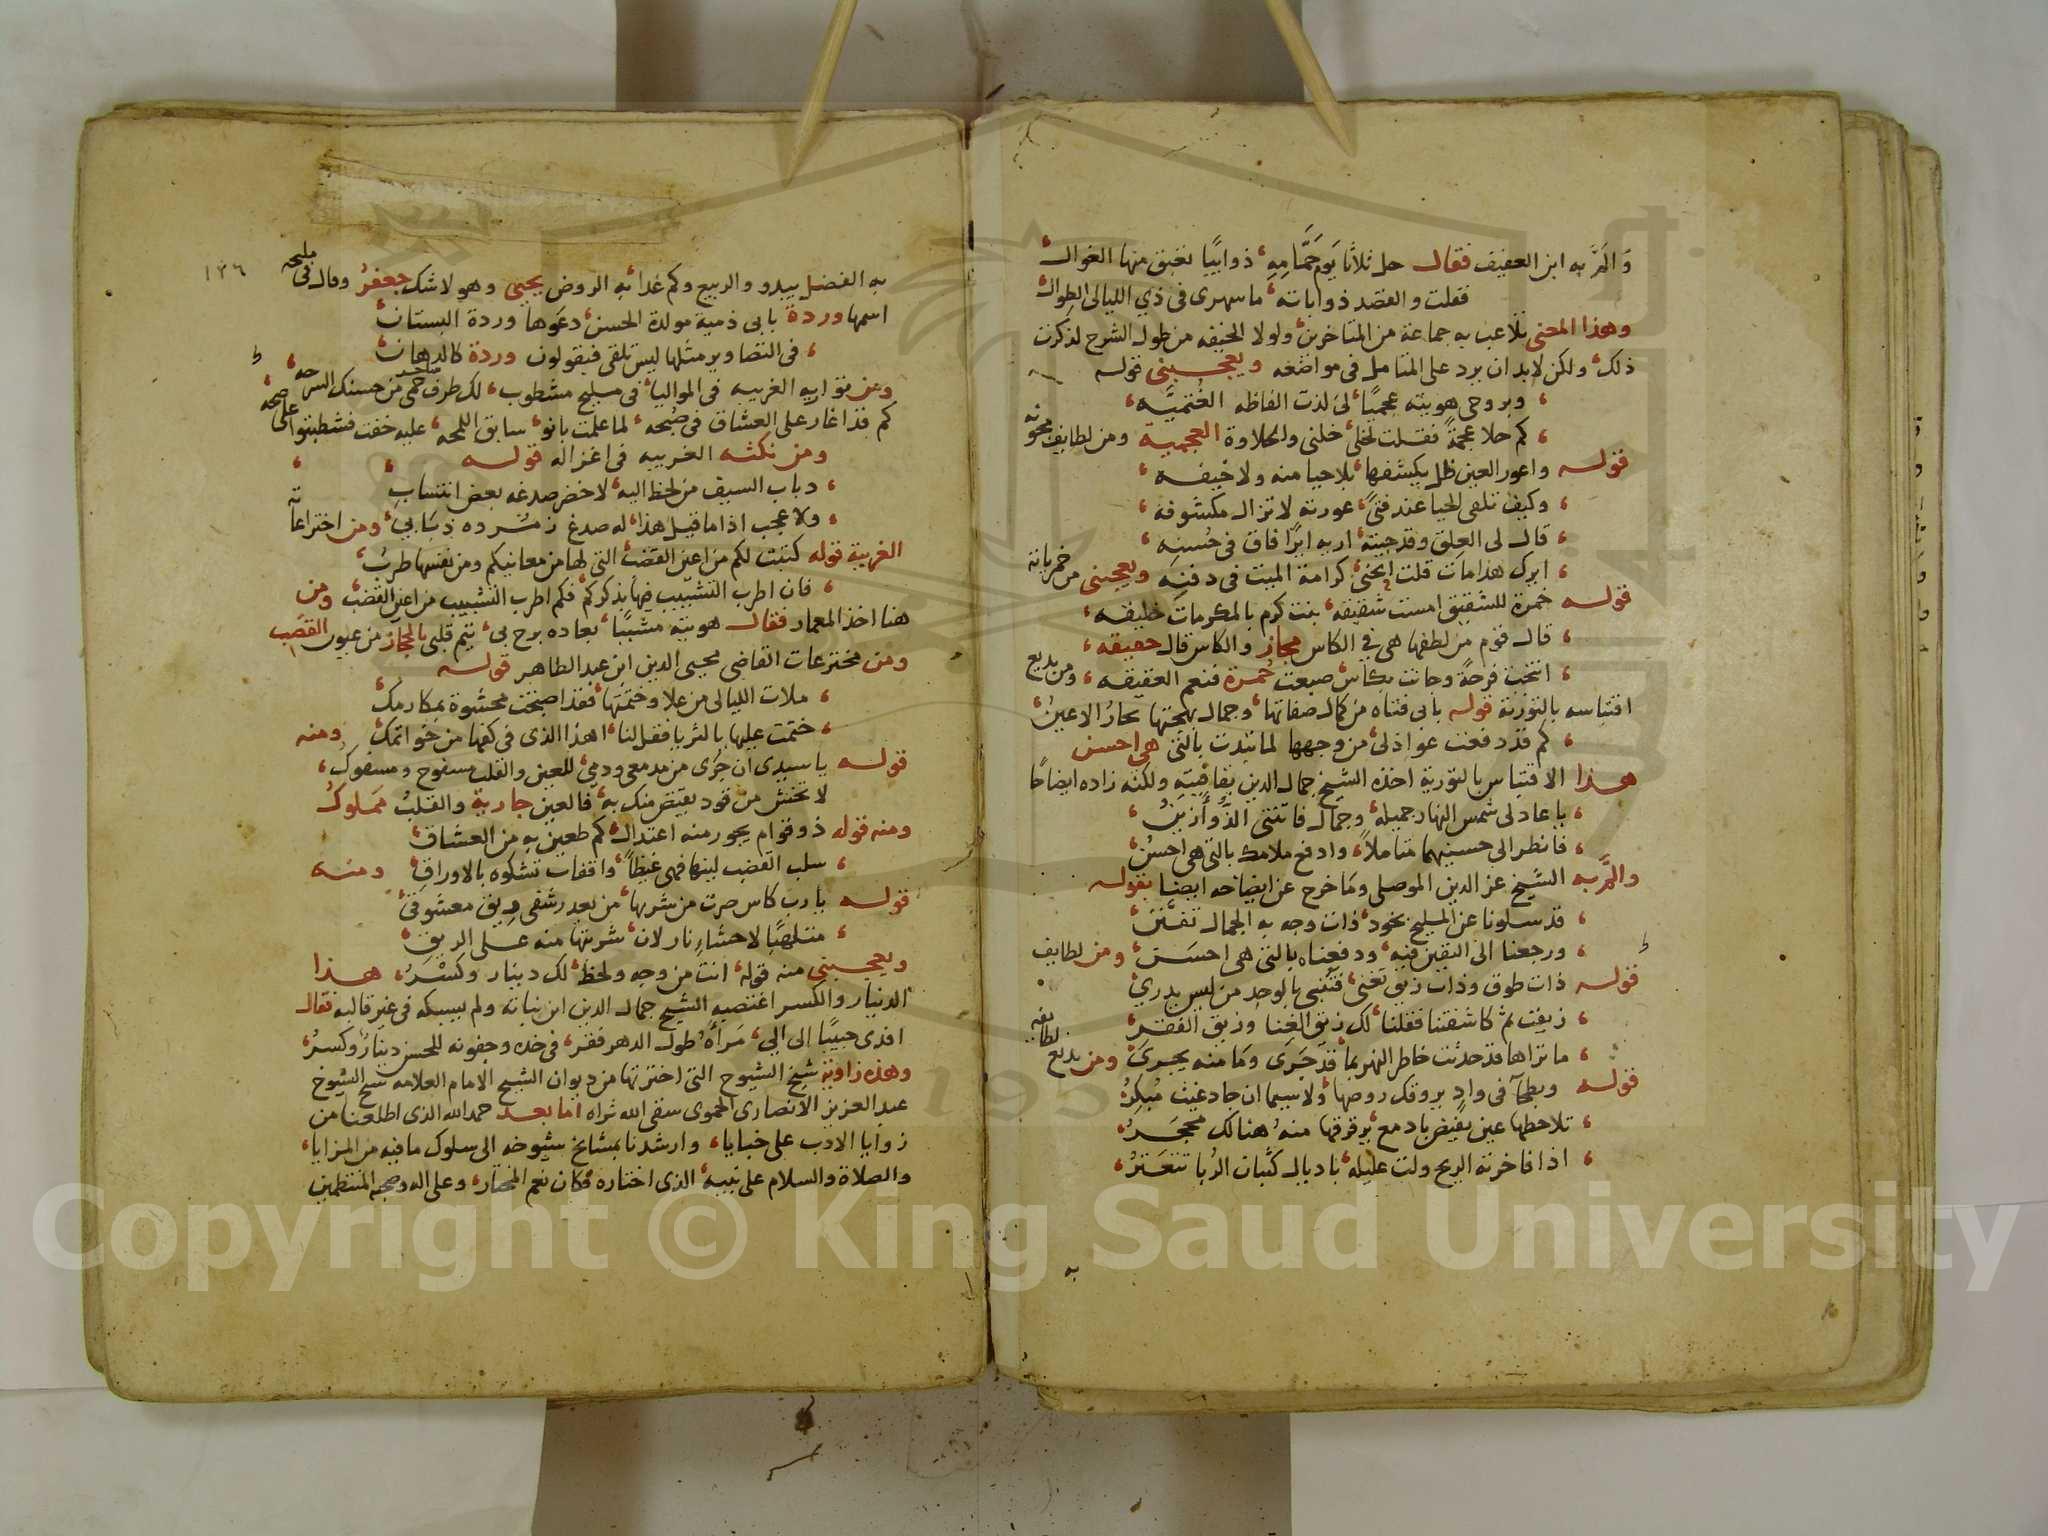 والمَّ به ابن العفيف فقال حل ثلاثا يوم حمَّامه ذوايبًا تعبق منها الغوال
فقلت والقصد ذواباته ما سهرى فى ذي الليالى الطوال
وهذا المعنى تلاعب به جماعة من المتاخرين ولولا الخيفه من طول الشرح لذكرت
ذلك ولكن لابد ان يرد على المتامل فى مواضعه ويعجبنى قوله
وبروحى هويته عجميًا لى لذت الفاظه الغتميّه
كم حلا عجمةً فقلت لخلى خلنى والحلاوة العجمية ومن لطايف مجونه
قوله واعور العين ظل يكشفها بلا حيا منه ولا خيفه
وكيف تلفى الحيا عند فتىً عورته لا تزال مكشوفه
قال لى العلق وقد جيته اربه ايرًا فاق فى حسنه
ابرك هذا مات قلت انحنى كرامة الميت فى دفنه ويعجبنى من خمرياته
قوله خمرة للشقيق امست شقيقه بنت كرم بالمكرمات خليقه
قال قوم من لطفها هى فى الكاس مجاز والكاس قال حقيقه
انتجت فرحةً وجاءت بكاس صبعت حمرة فنعم العقيقه ومن بديع
اقتباسه بالتورية قوله بابى فتاه من كمال صفاتها وجمال بهجتها تحار الاعين
كم قد دفعت عواذلى من وجهها لما تبدت بالتى هى احسن
هذا الاقتباس بالتورية اخذه الشيخ جمال الدين بقافيته ولكنه زاده ايضاحا
يا عاذلى شمس النهار جميله وجمال فاتنتى الذُّ وأزين
فانظر الى حسنيهما متاملاً وادفع ملامك بالتى هى احسن
والمَّ به الشيخ عز الدين الموصلى وما خرج عن ايضاحه ايضا بقوله
قد سلونا عن المليح بخود ذات وجه به الجمال تفنن
ورجعنا الى اليقين فيه ودفعناه بالتى هى احسن ومن لطايف
قوله ذات طوق وذات زيق تغنى فتنبى بالوجد من ليس يدرى
زيفت ثم كاشفتنا فقلنا لك زيق الغنا وزيق الفقر
ما تراها قد حدثت خاطر النهر بما قد جرى وما منه يجرى ومن بديع لطايفه
قوله وبطحآ فى واد يروقك روضها ولا سيما ان جاد غيث مبكر
تلاحظها عين تفيض بادمع يرقرقها منه هنالك محجر
اذا فاخرته الريح ولت عليله باذيال كثبان الربا تتعثر
به
١٣٦
به الفضل يبدو والربيع وكم غدا به الروض يحيى وهو لاشك جعفر وقال فى مليحه
اسمها وردة بابى ذمية مولدة الحسن دعوها وردة البستان
فى التصاوير مثلها ليس تلقى فيقولون وردة كالدهان
ومن نوادره الغريبه فى المواليا فى مليح مشطوب لك طرف حمى من حسنك السرحه
كم قد اغار على العشاق فى صبحه لما علمت بانو سابق اللمحه عليه خفت فشطبتو على صحه
ومن نكته الغريبه فى اغزاله قوله
دباب السيف من لحظ اليه لاخضر صدغه بعض انتساب
ولا عجب اذا ما قيل هذا له صدغ زمرده ذبابى ومن اختراعاته
الغريبة قوله كتبت لكم من اعين القضب التى لها من معانيكم ومن نفسها طرب
فان اطرب التشبيب فيها بذكركم فكم اطرب التشبيب من اعين القضب ومن
هنا اخذ المعمار فقال هويته مشببًا بعاده برح بى تيم قلبى بالمجاز من عيون القصب
ومن مخترعات القاضى محيى الدين ابن عبد الظاهر قوله
ملات الليالى من علا وختمتها فقد اصبحت محشوة بمكارمك
ختمت عليها بالثريا فقل لنا اهذا الذى فى كفها من خواتمك ومنه
قوله يا سيدى ان جرى من مدمعى ودمى للعين والقلب مسفوح ومسفوك
لا تخش من قود يقتص منك به فالعين جارية والقلب مملوك
ومنه قوله ذو قوام يجور منه اعتدال كم طعين به من العشاق
سلب القضب لينها فهى غيظًا واقفات تشكوه بالاوراق ومنه
قوله يا رب كاس صرت من شربها من بعد رشفى ريق معشوقى
متلهبًا لاحشاء نار لان شربتها منه على الريق
ويعجبنى منه قوله انت من وجه ولحظ لك دينار وكسر هذا
الدينار والكسر اغتصبه الشيخ جمال الدين ابن نباته ولم يسبكه فى غير قالبه فقال
افدى حبيبًا الى مرآه طول الدهر فقر فى خده وجفونه للحسن دينار وكسر
وهذه زاوية شيخ الشيوخ التى اخترتها من ديوان الشيخ الامام العلامه شيخ الشيوخ
عبد العزيز الانصارى الحموى سقى الله ثراه اما بعد حمد الله الذى اطلعنا من
زوايا الادب على خبايا وارشدنا بمشايخ شيوخه الى سلوك ما فيه من المزايا
والصلاة والسلام على نبيه الذى اختاره فكان نعم المختار وعلى اله وصحبه المنتظمين
Copyright © King Saud University
1957